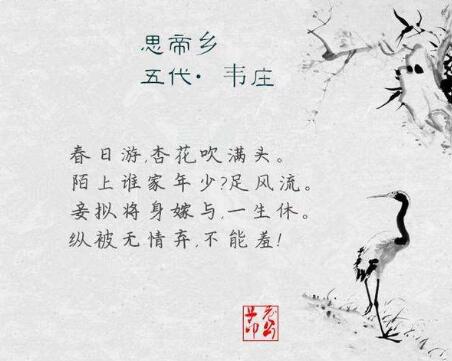 思帝乡
五代·韦庄
春日游,杏花吹满头。
陌上谁家年少?足风流。
妾拟将身嫁与,一生休。
纵被无情弃,不能羞!